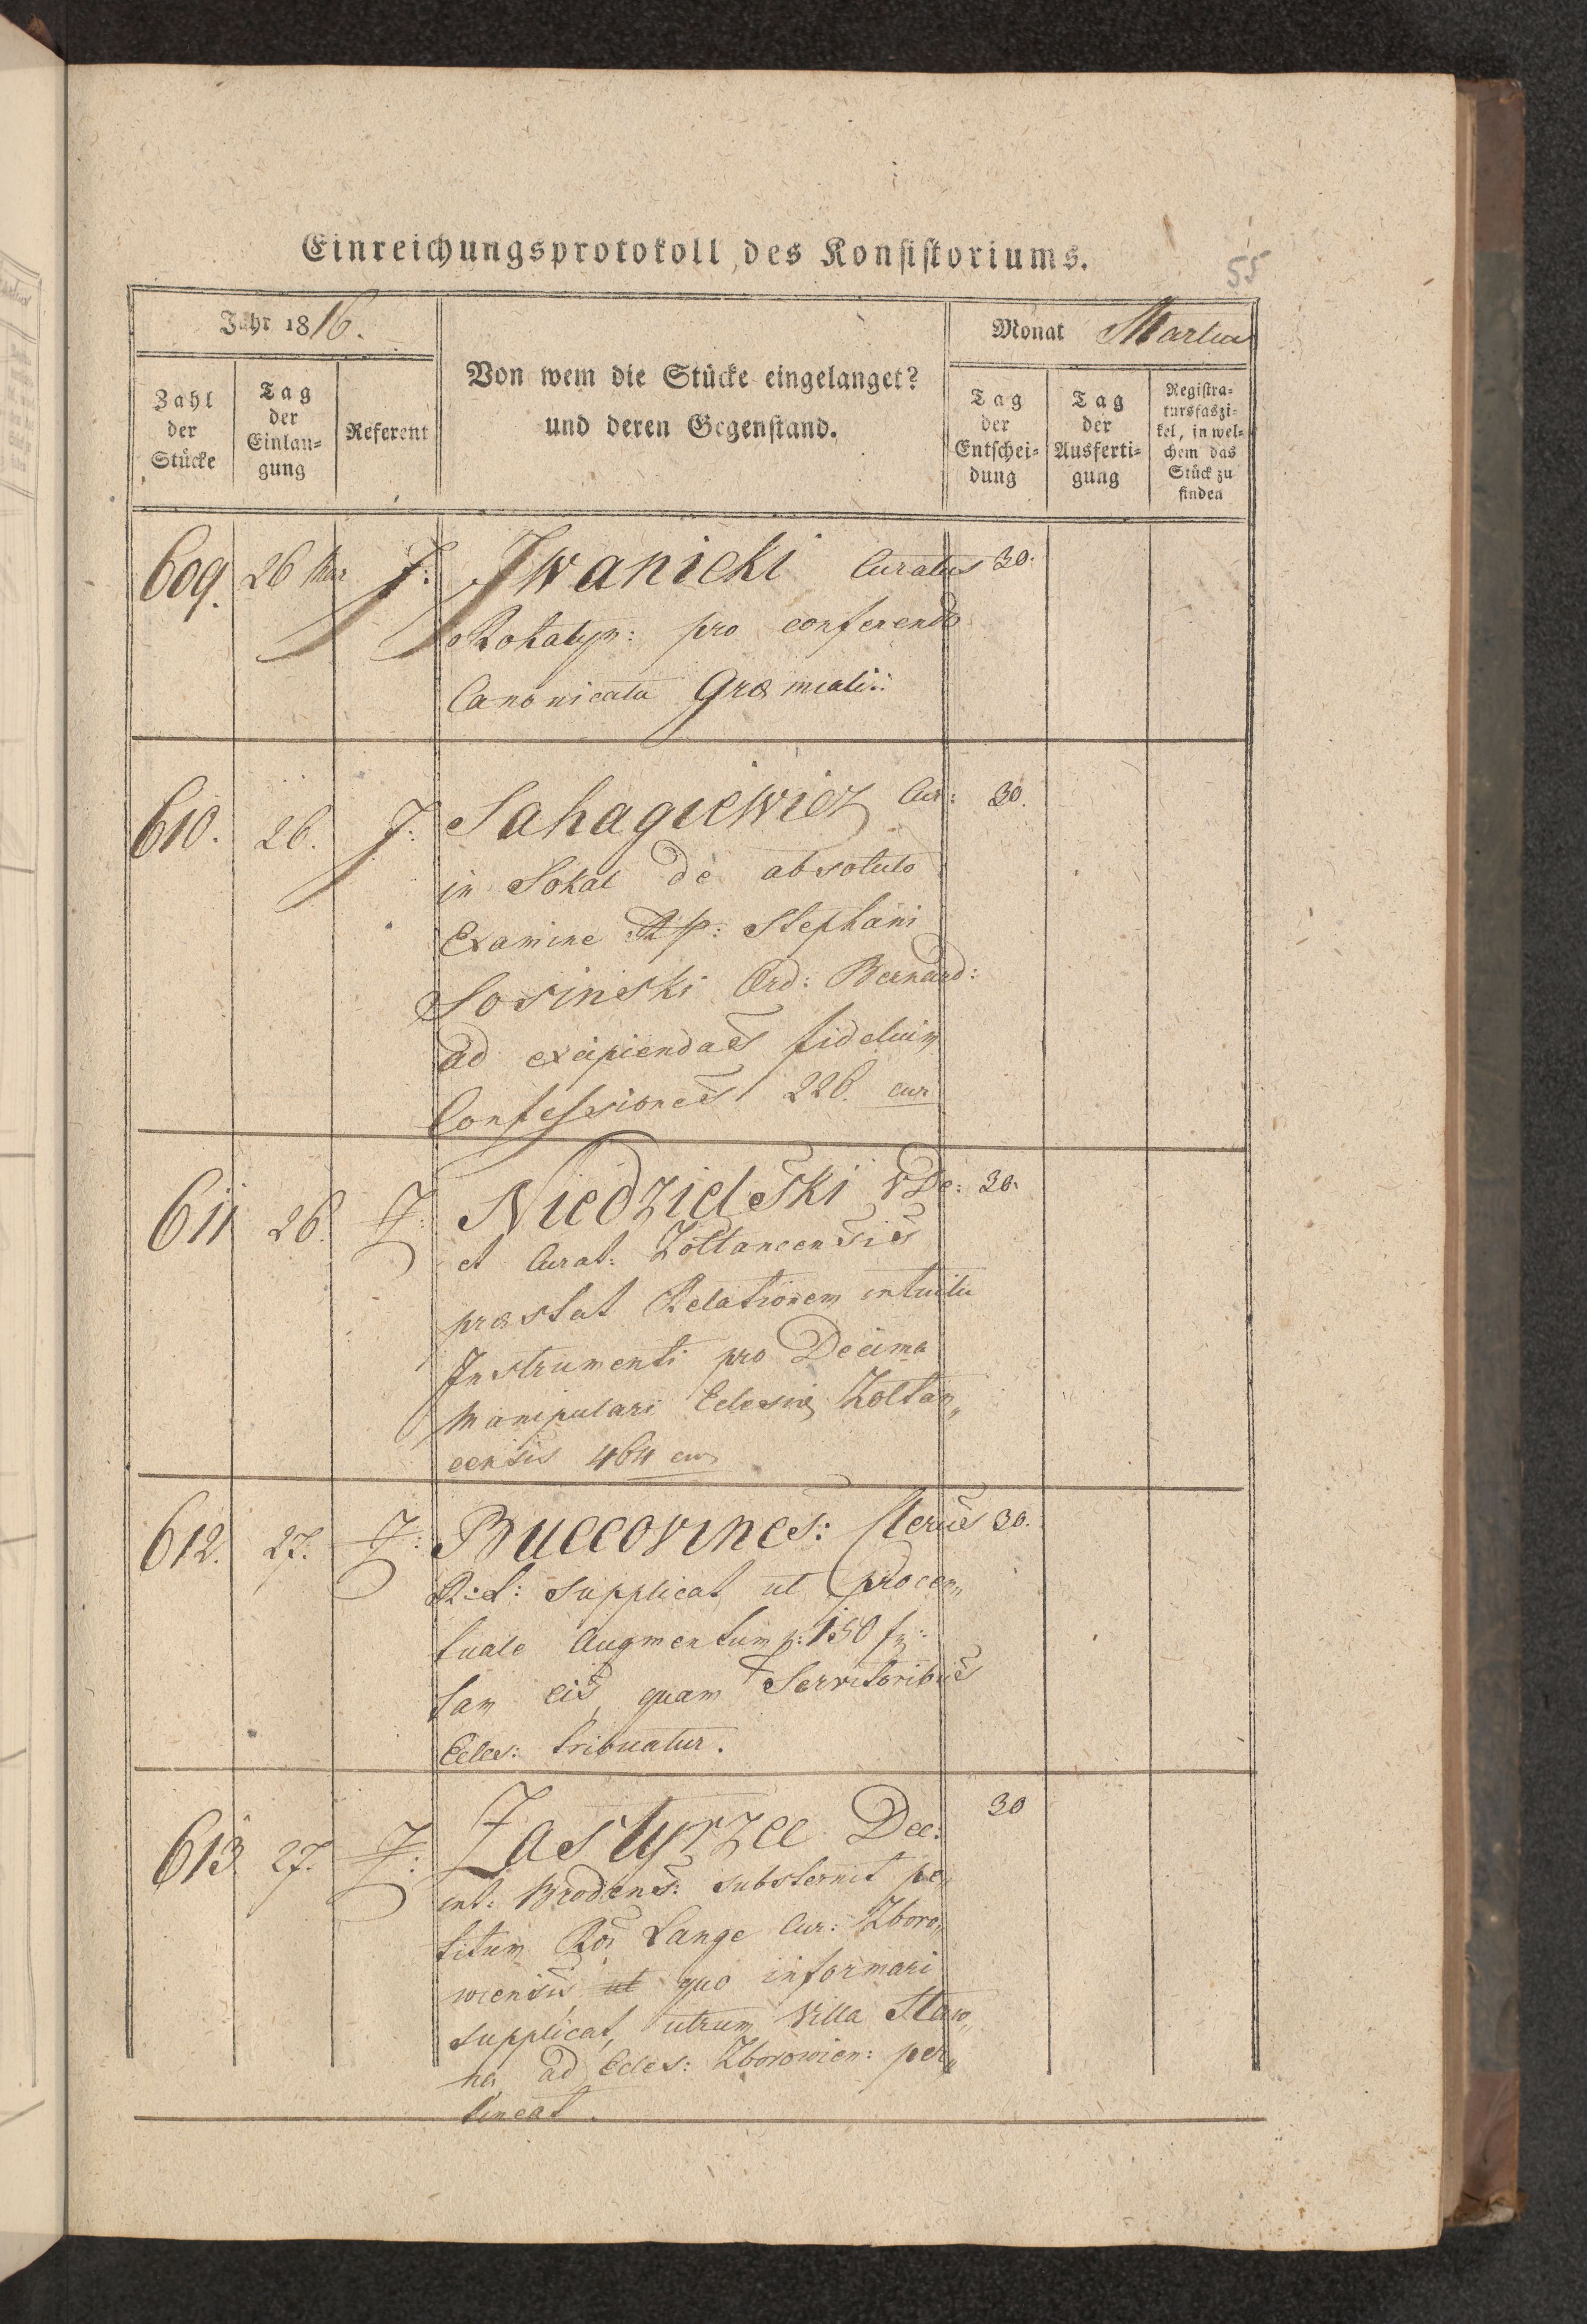 Einreichungsprotokoll des Konsistoriums.
55
Jahr 1816.
Monat Martius
Zahl der Stücke
Tag der Einlangung
Referent
Von wem die Stücke eingelanget?
und deren Gegenstand.
Tag der Entscheidung
Tag der Ausfertigung
Registratursfaszikel, in welchem das Stück zu finden
609. 26 Mar J: Iwanicki Curatus 30.
Rohatyn: pro conferendo
Canonicatu Græmiali:
610. 26. J: Sahagiewicz Cur: 30.
in Sokal de absoluto
Examine R P: Stephani
Sosinski Ord: Bernard:
ad excipiendas fidelium
Confessiones 226. cur
611 26. J: Niedzielski VDe: 30.
et Curat: Zoltancensis
præstat Relationem intuitu
Instrumenti pro Decima
manipulari Eclesiæ Zoltan„
censis 464 cur
612. 27. J: Buccovines: Clerus 30.
R: L: supplicat ut procen„
tuale Augmentum p: 150 fr:
tam eis, quam Servitoribus
Eccles: tribuatur.
613 27. J: Zastyrzec Dec: 30
ent: Brodens: substernit pe„
titum Roi Lange Cur: Zboro„
wiensis ut quo informari
supplicat, utrum Villa Staw„
na ad Ecles: Zborowien: per„
tineat.